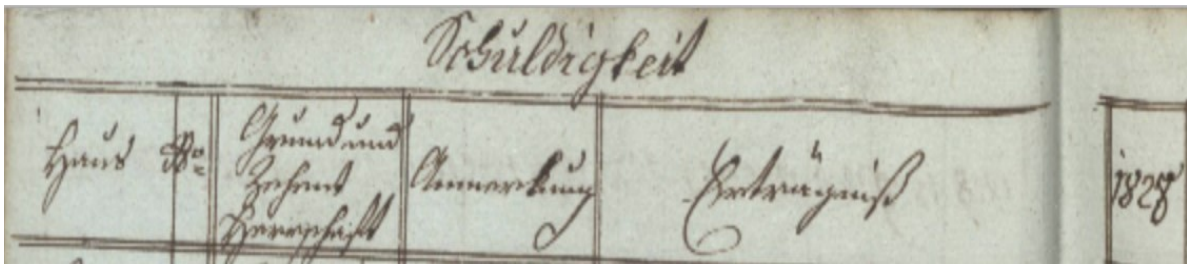 Schuldigkeit
Haus
No
Grund und
Zehent
Herrschaft
Anmerkung
Erträgniß
1828